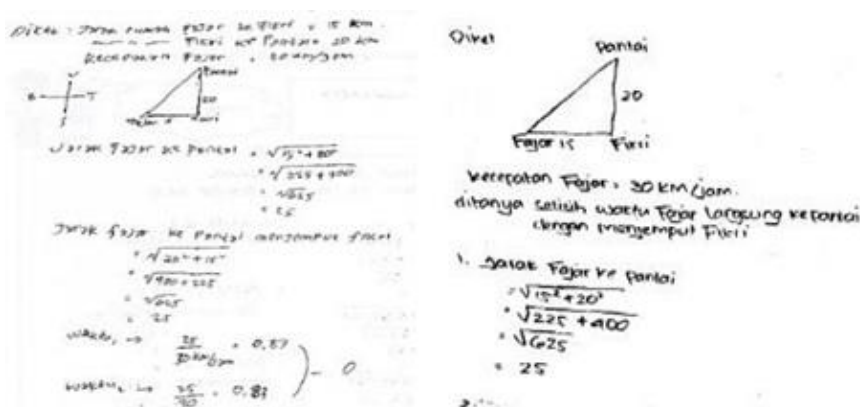 Diket : Jarak rumah Fajar ke Fikri = 15 km
Fikri ke Pantai = 20 km
Kecepatan Fajar = 30 km/jam
U
B T
S
Pantai
20
Fikri
Jarak Fajar ke Pantai = √15² + 20²
= √225 + 400
= √625
= 25
Jarak Fajar ke Pantai menjemput Fikri
= √20² + 15²
= √400 + 225
= √625
= 25
waktu₁ → 25/30 km/jam = 0,87
waktu₂ → 25/30 = 0,83
= 0
Diket
Pantai
20
Fajar 15 Fikri
kecepatan Fajar = 30 km/jam.
ditanya selisih waktu Fajar langsung ke pantai
dengan menjemput Fikri
1. Jarak Fajar ke pantai
= √15² + 20²
= √225 + 400
= √625
= 25